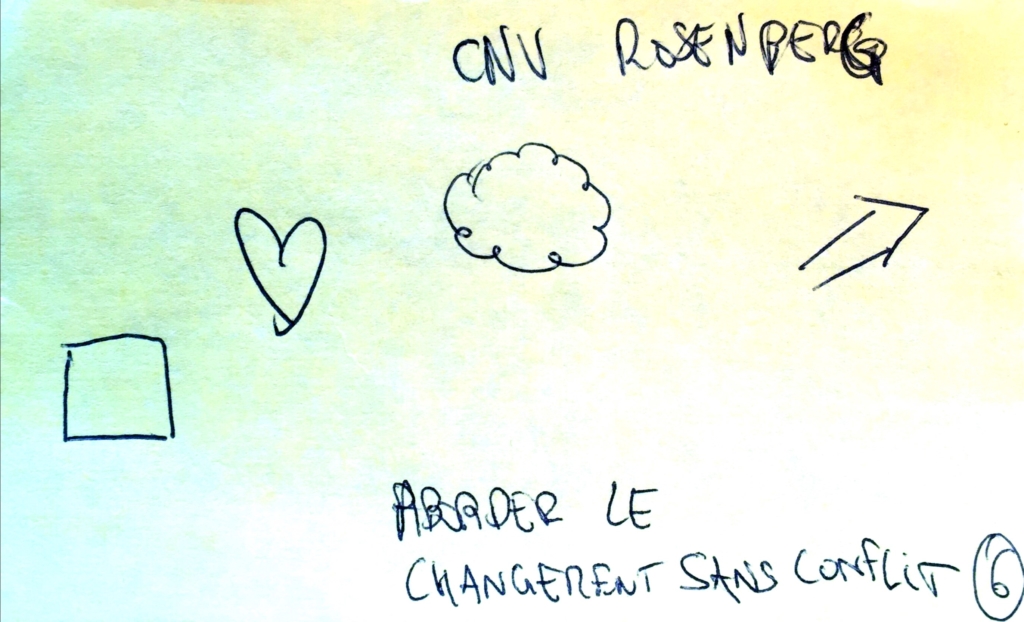 CNV ROSENBERG
ABORDER LE
CHANGEMENT SANS CONFLIT 6